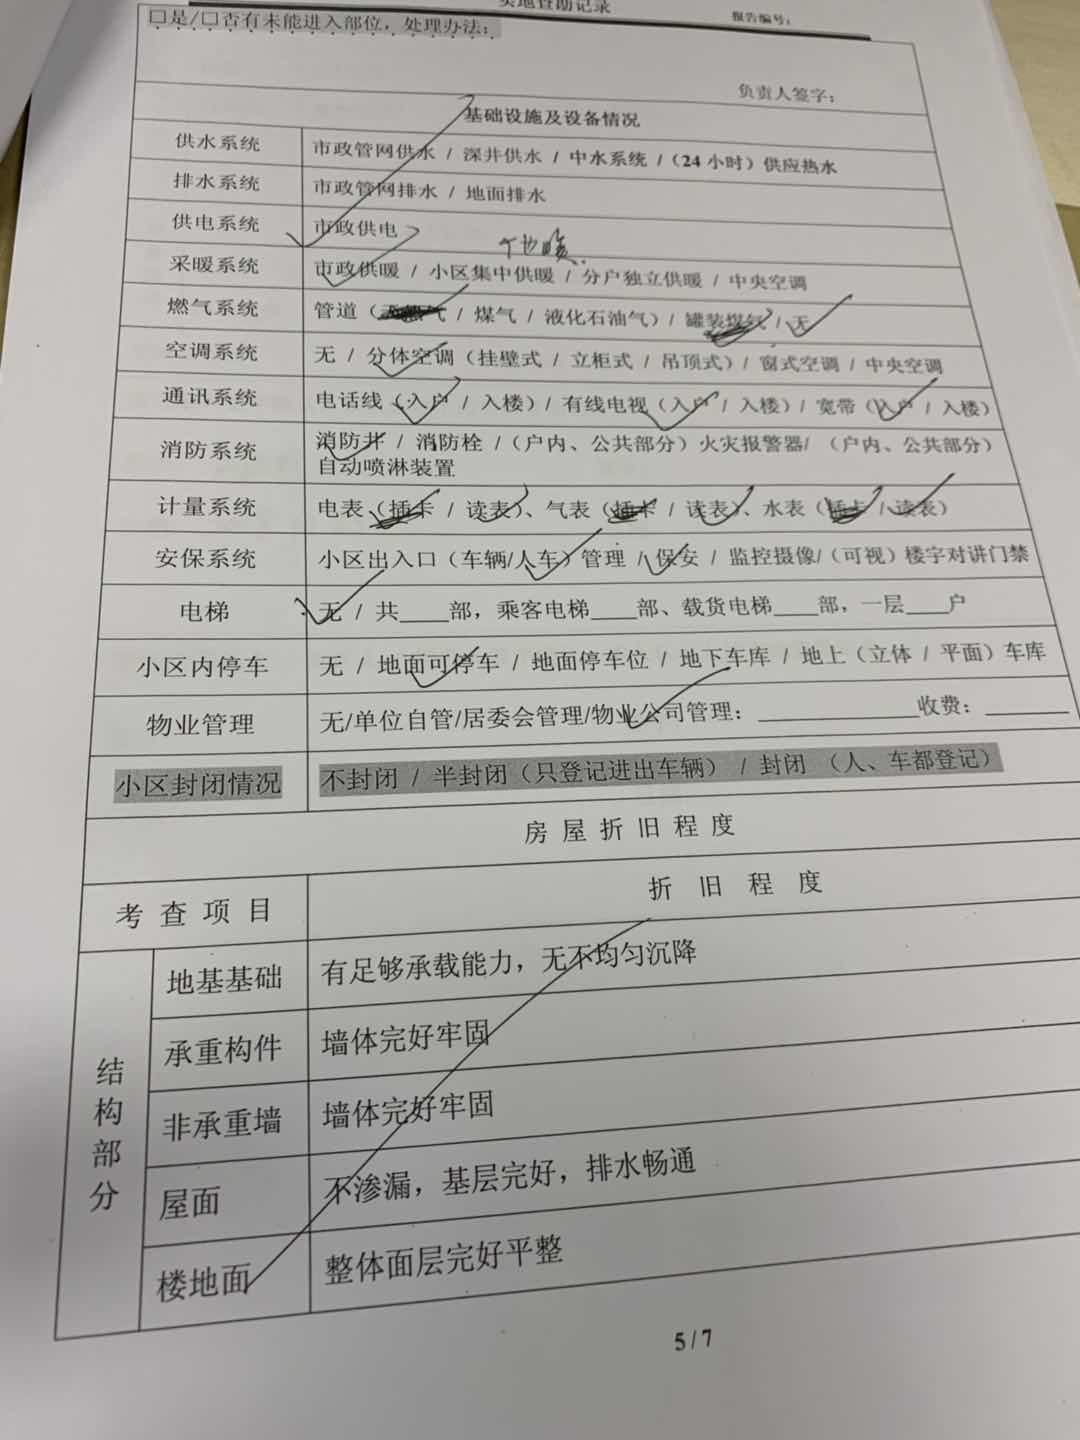 实地查勘记录
报告编号:
□是/□否有未能进入部位，处理办法：
负责人签字：
基础设施及设备情况
供水系统 市政管网供水 / 深井供水 / 中水系统 /（24 小时）供应热水
排水系统 市政管网排水 / 地面排水
供电系统 市政供电
地暖
采暖系统 市政供暖 / 小区集中供暖 / 分户独立供暖 / 中央空调
燃气系统 管道（天然气 / 煤气 / 液化石油气）/ 罐装煤气 / 无
空调系统 无 / 分体空调（挂壁式 / 立柜式 / 吊顶式）/ 窗式空调 / 中央空调
通讯系统 电话线（入户 / 入楼）/ 有线电视（入户 / 入楼）/ 宽带（入户 / 入楼）
消防系统 消防井 / 消防栓 /（户内、公共部分）火灾报警器/ （户内、公共部分）
自动喷淋装置
计量系统 电表（插卡 / 读表）、气表（插卡 / 读表）、水表（插卡 / 读表）
安保系统 小区出入口（车辆/人车）管理 / 保安 / 监控摄像/（可视）楼宇对讲门禁
电梯 无 / 共____部，乘客电梯____部、载货电梯____部，一层____户
小区内停车 无 / 地面可停车 / 地面停车位 / 地下车库 / 地上（立体 / 平面）车库
物业管理 无/单位自管/居委会管理/物业公司管理：______________收费：_______
小区封闭情况 不封闭 / 半封闭（只登记进出车辆） / 封闭 （人、车都登记）
房屋折旧程度
考查项目 折旧程度
结构部分
地基基础 有足够承载能力，无不均匀沉降
承重构件 墙体完好牢固
非承重墙 墙体完好牢固
屋面 不渗漏，基层完好，排水畅通
楼地面 整体面层完好平整
5 / 7